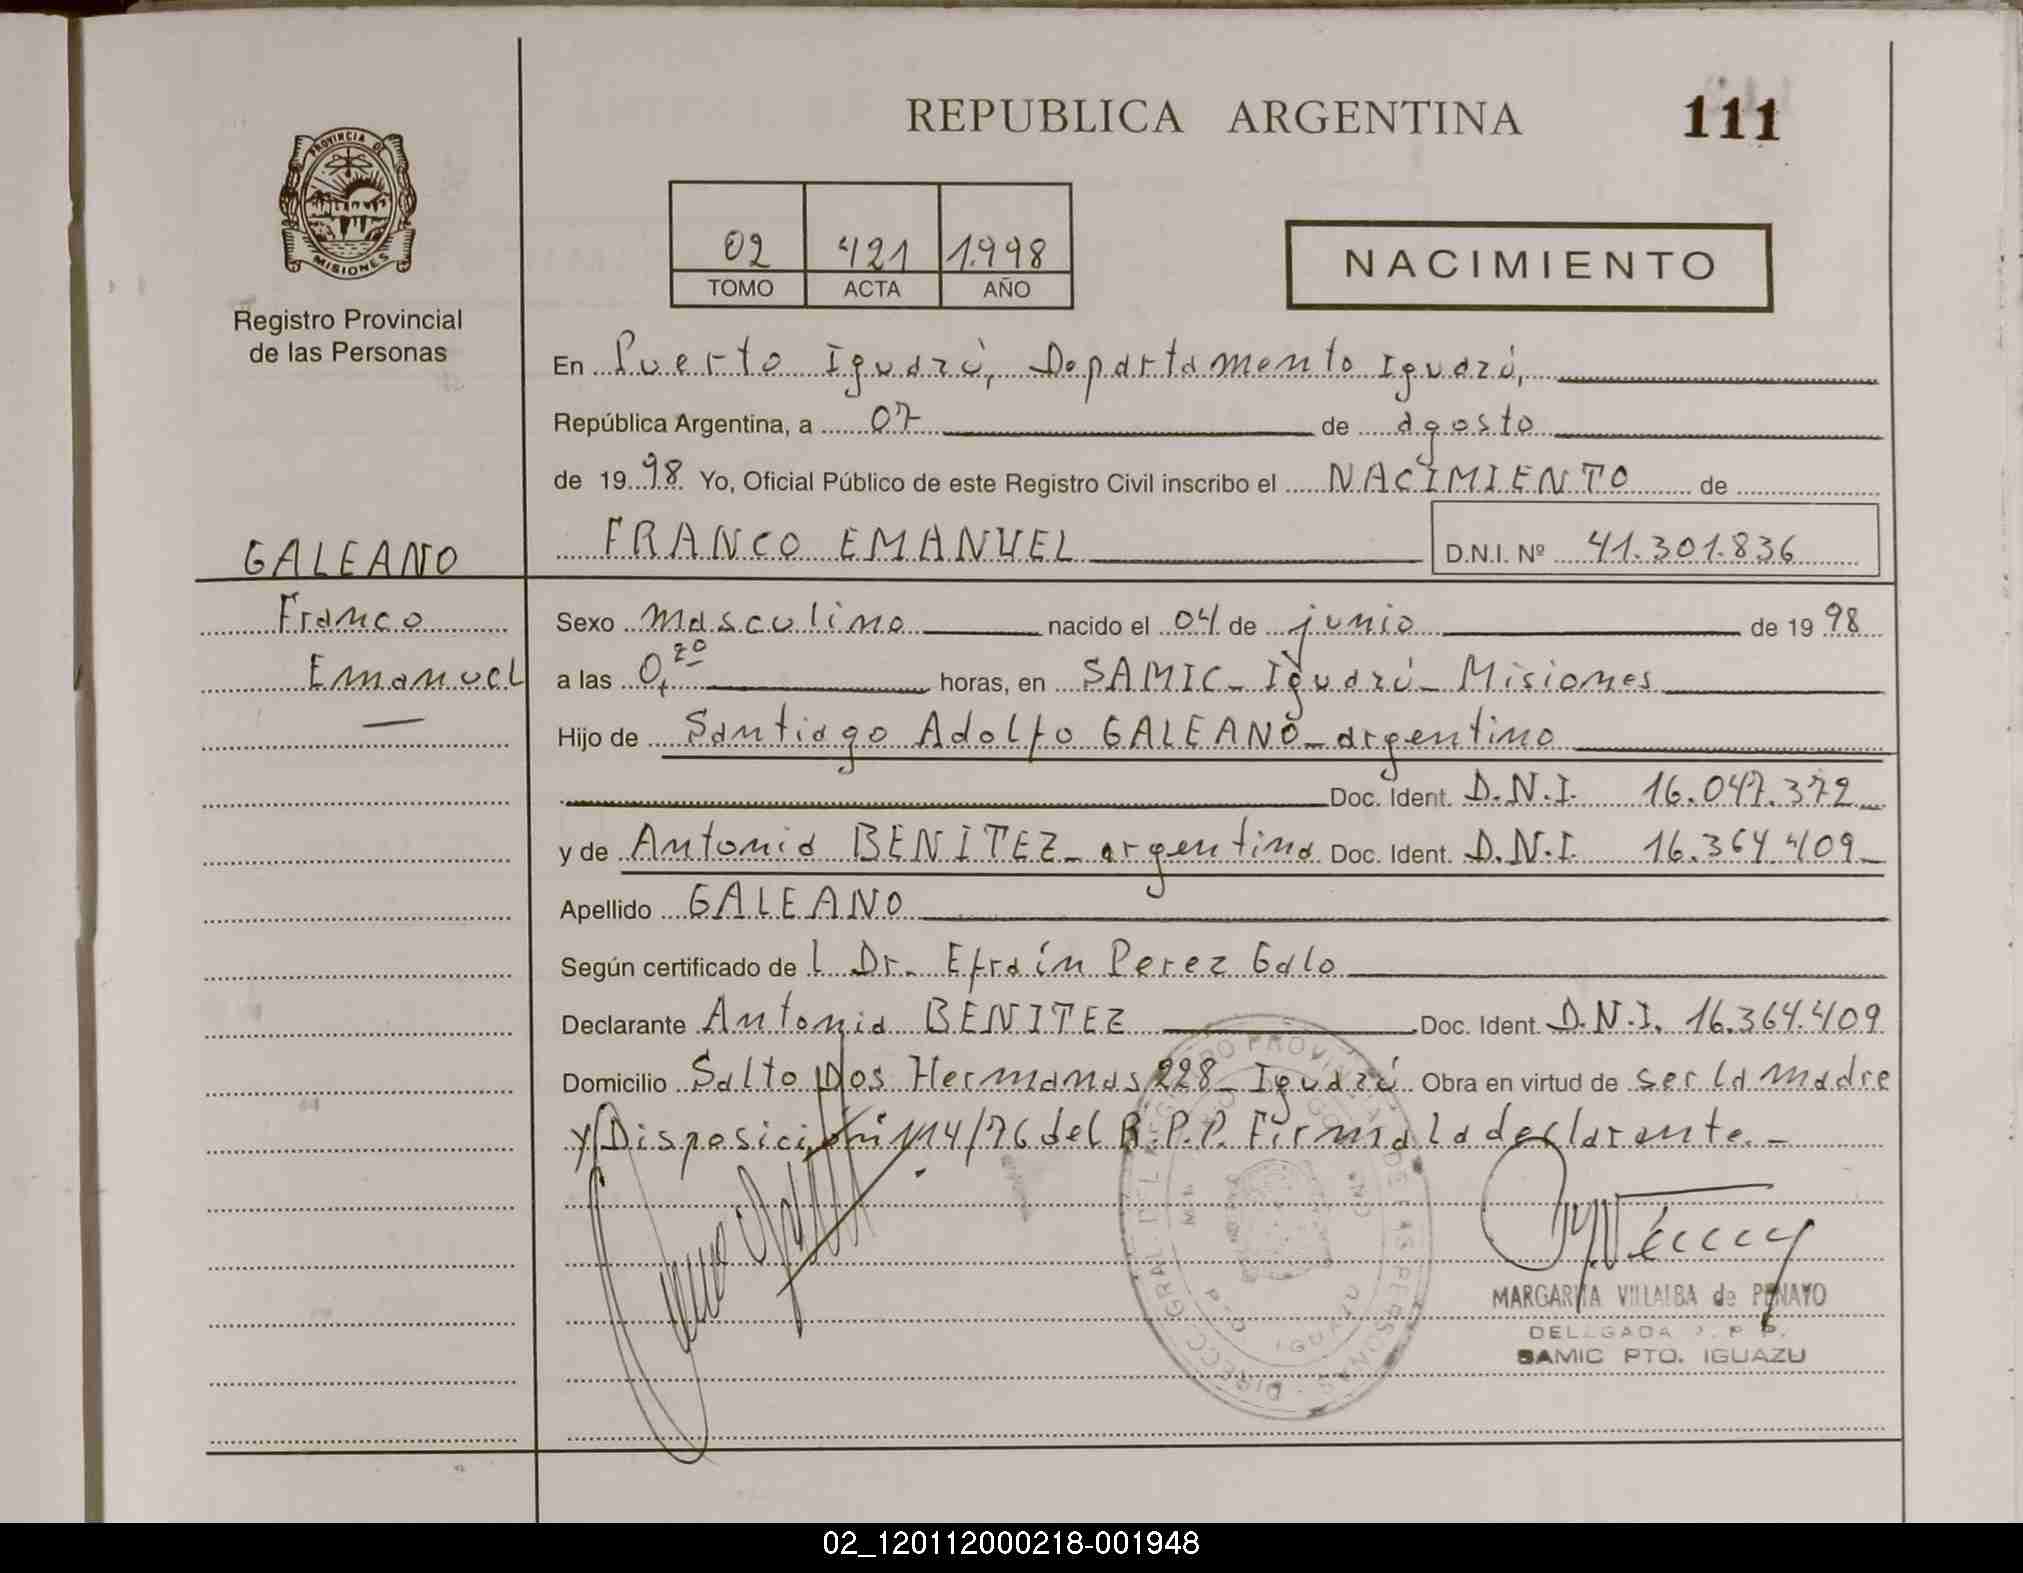 REPUBLICA ARGENTINA
111
PROVINCIA DE
MISIONES
Registro Provincial
de las Personas
02 421 1.998
TOMO ACTA AÑO
NACIMIENTO
En Puerto Iguazú, Departamento Iguazú,
República Argentina, a 07 de agosto
de 1998 Yo, Oficial Público de este Registro Civil inscribo el NACIMIENTO de
GALEANO
Franco
Emanuel
FRANCO EMANUEL D.N.I. Nº 41.301.836
Sexo masculino nacido el 04 de junio de 1998
a las 0,20 horas, en SAMIC - Iguazú - Misiones
Hijo de Santiago Adolfo GALEANO - argentino
Doc. Ident. D.N.I. 16.047.372
y de Antonia BENITEZ - argentina Doc. Ident. D.N.I. 16.364.409
Apellido GALEANO
Según certificado de l Dr. Efraín Perez Galo
Declarante Antonia BENITEZ Doc. Ident. D.N.I. 16.364.409
Domicilio Salto Dos Hermanas 228 - Iguazú Obra en virtud de ser la madre
y Disposición 114/76 del R.P.P. Firma la declarante. -
MARGARITA VILLALBA de PENAYO
DELEGADA R. P. P.
SAMIC PTO. IGUAZU
DIRECC. GRAL. DEL REGISTRO PROVINCIAL DE LAS PERSONAS
IGUAZU
02_120112000218-001948